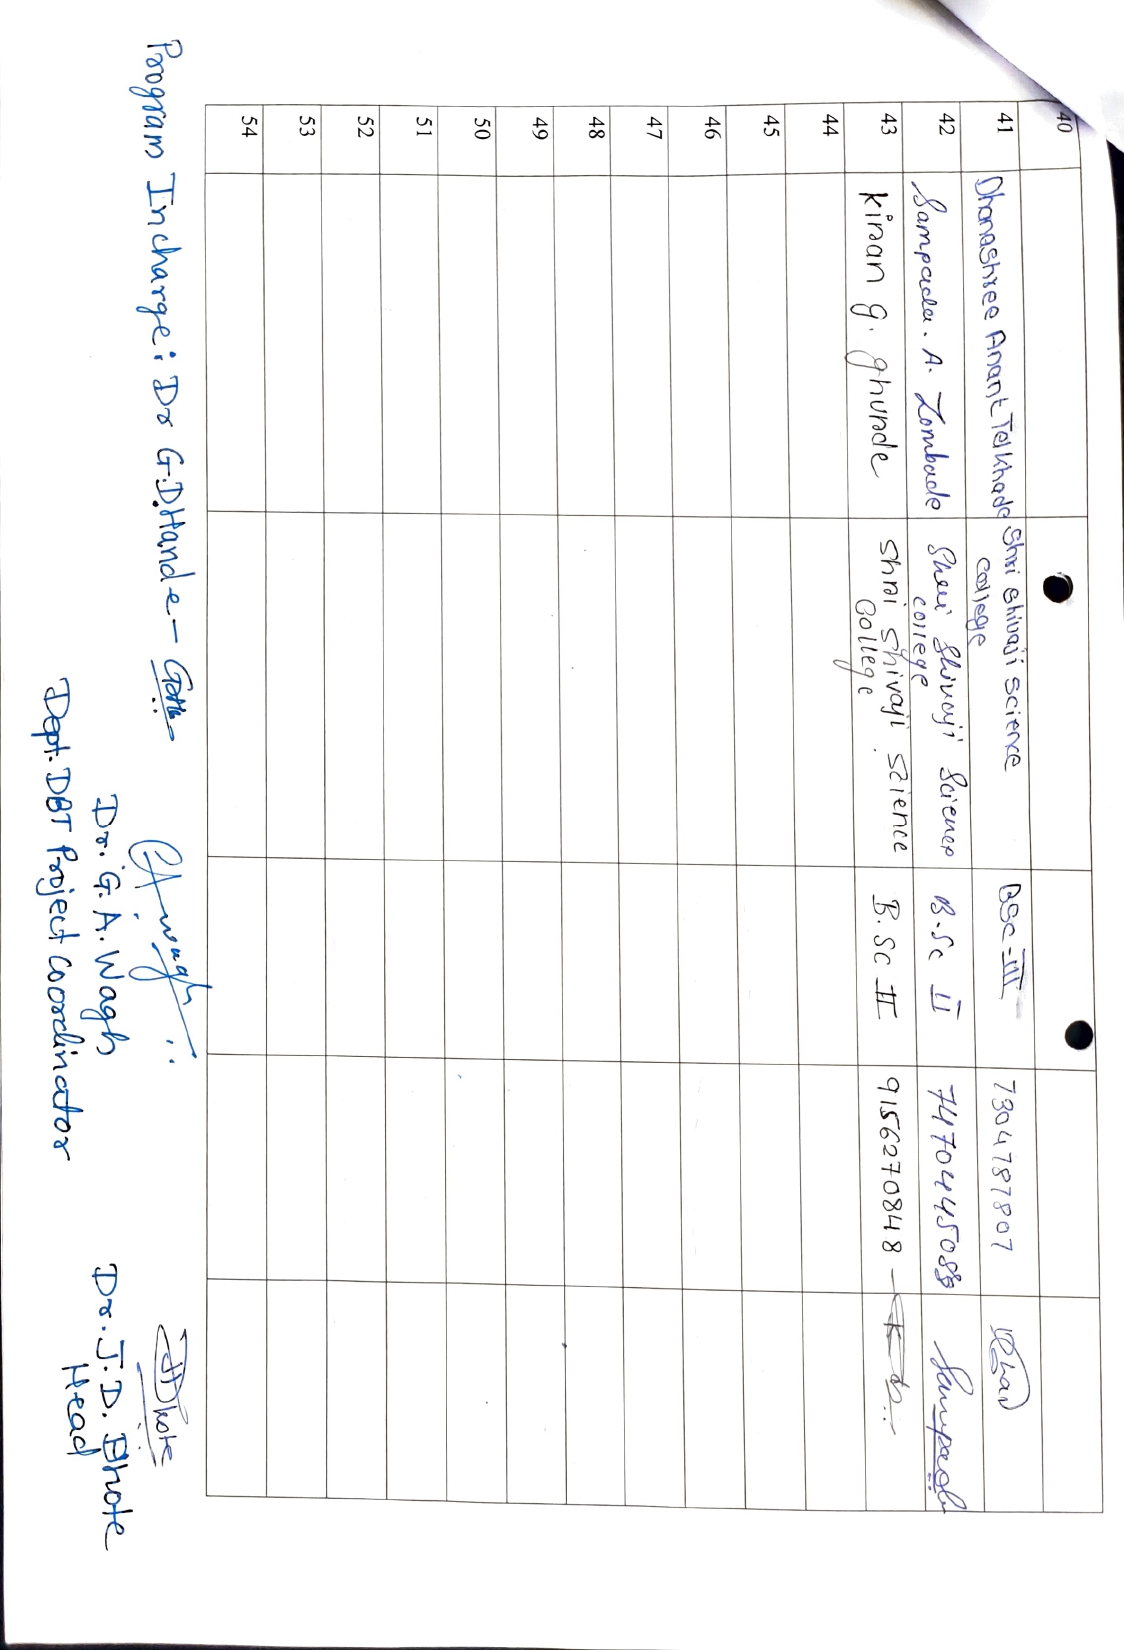 40
41 Dhanashree Anant Telkhade Shri Shivaji Science College BSc-III 7304787807
42 Sampada. A. Zombade Shri Shivaji Science College B.Sc II 7470445088 Sampada
43 kiran g. ghurde Shri Shivaji Science College B.Sc II 9156270848
44
45
46
47
48
49
50
51
52
53
54
Program Incharge: Dr G.D.Hande-
Dr. G. A. Wagh
Dept. DBT Project Coordinator
Dr. J. D. Dhote
Head